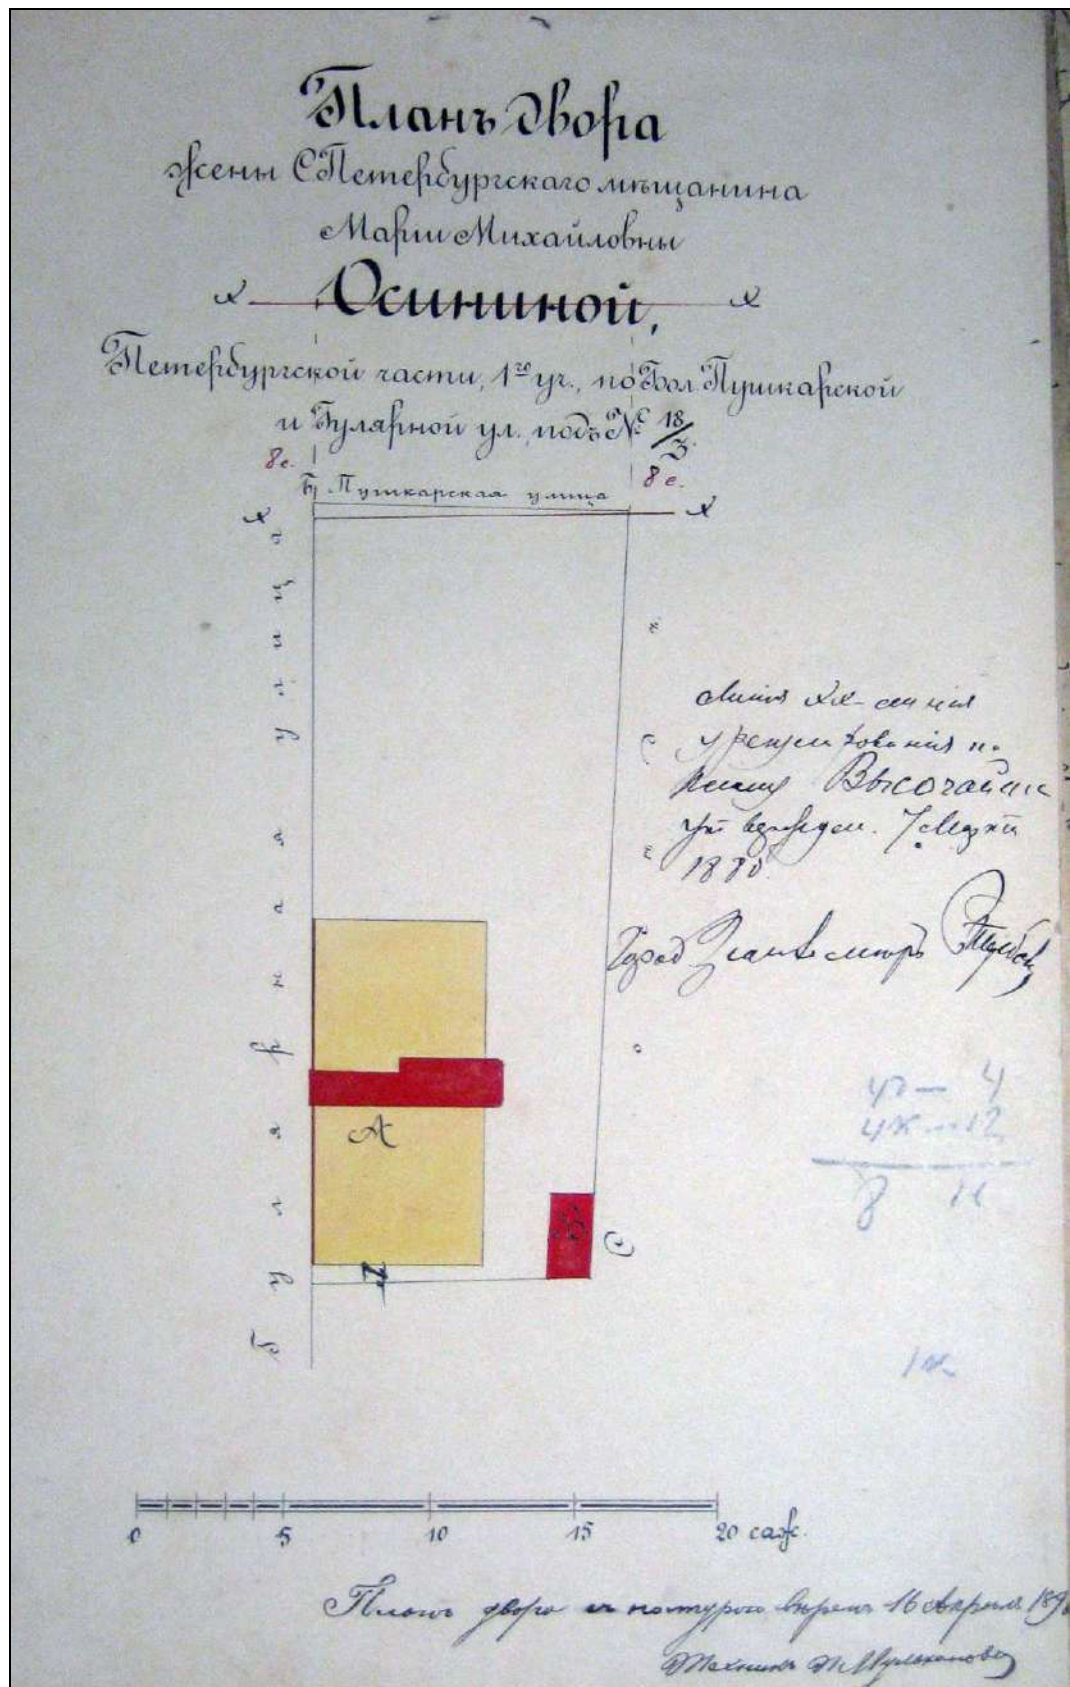 Планъ двора
жены С Петербургскаго мѣщанина
Маріи Михайловны
х Осининой, х
Петербургской части, 1го уч., по Бол. Пушкарской
и Гулярной ул. подъ № 18/3.
8 с.
8 с.
Б. Пушкарская улица
х х
Гулярная улица
Линія хх - линія
урегулированія по
плану Высочайше
утвержден. 7 Марта
1880
Город
А
Б
С
уб — 4
ук — 12
8
1к
0 5 10 15 20 саж.
Планъ двора съ натурою вѣренъ 16 Апрѣля 189
Техникъ